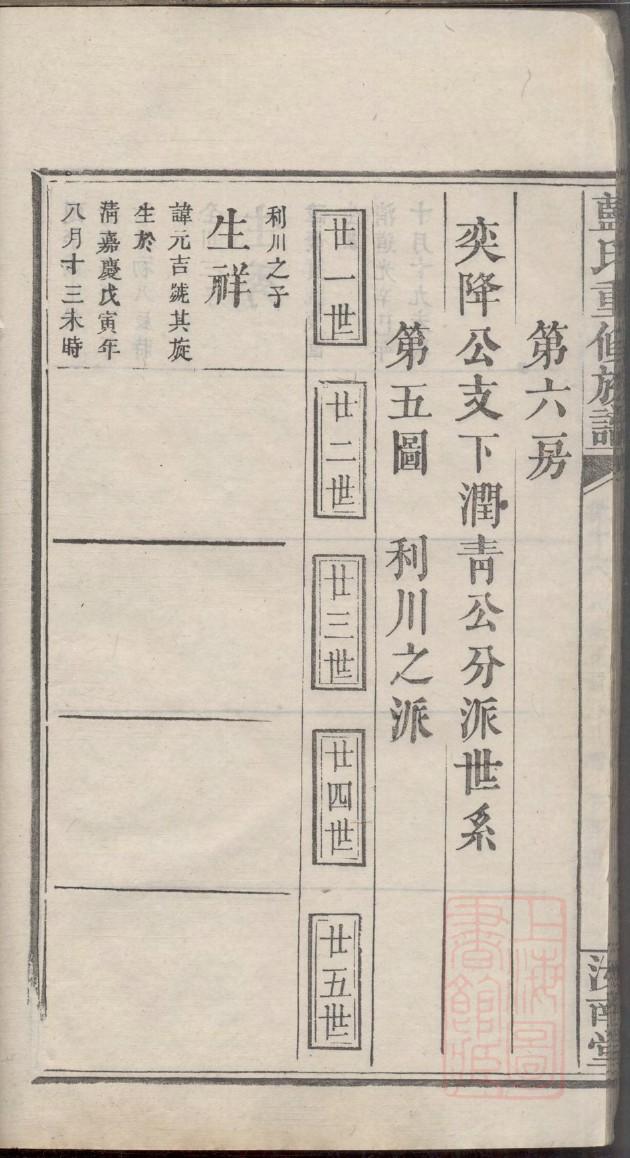 藍氏重修族譜
汝南堂
第六房
奕降公支下潤青公分派世系
第五圖 利川之派
廿一世
廿二世
廿三世
廿四世
廿五世
利川之子
生祥
諱元吉號其旋
生於
清嘉慶戊寅年
八月十三未時
上海圖
書館藏